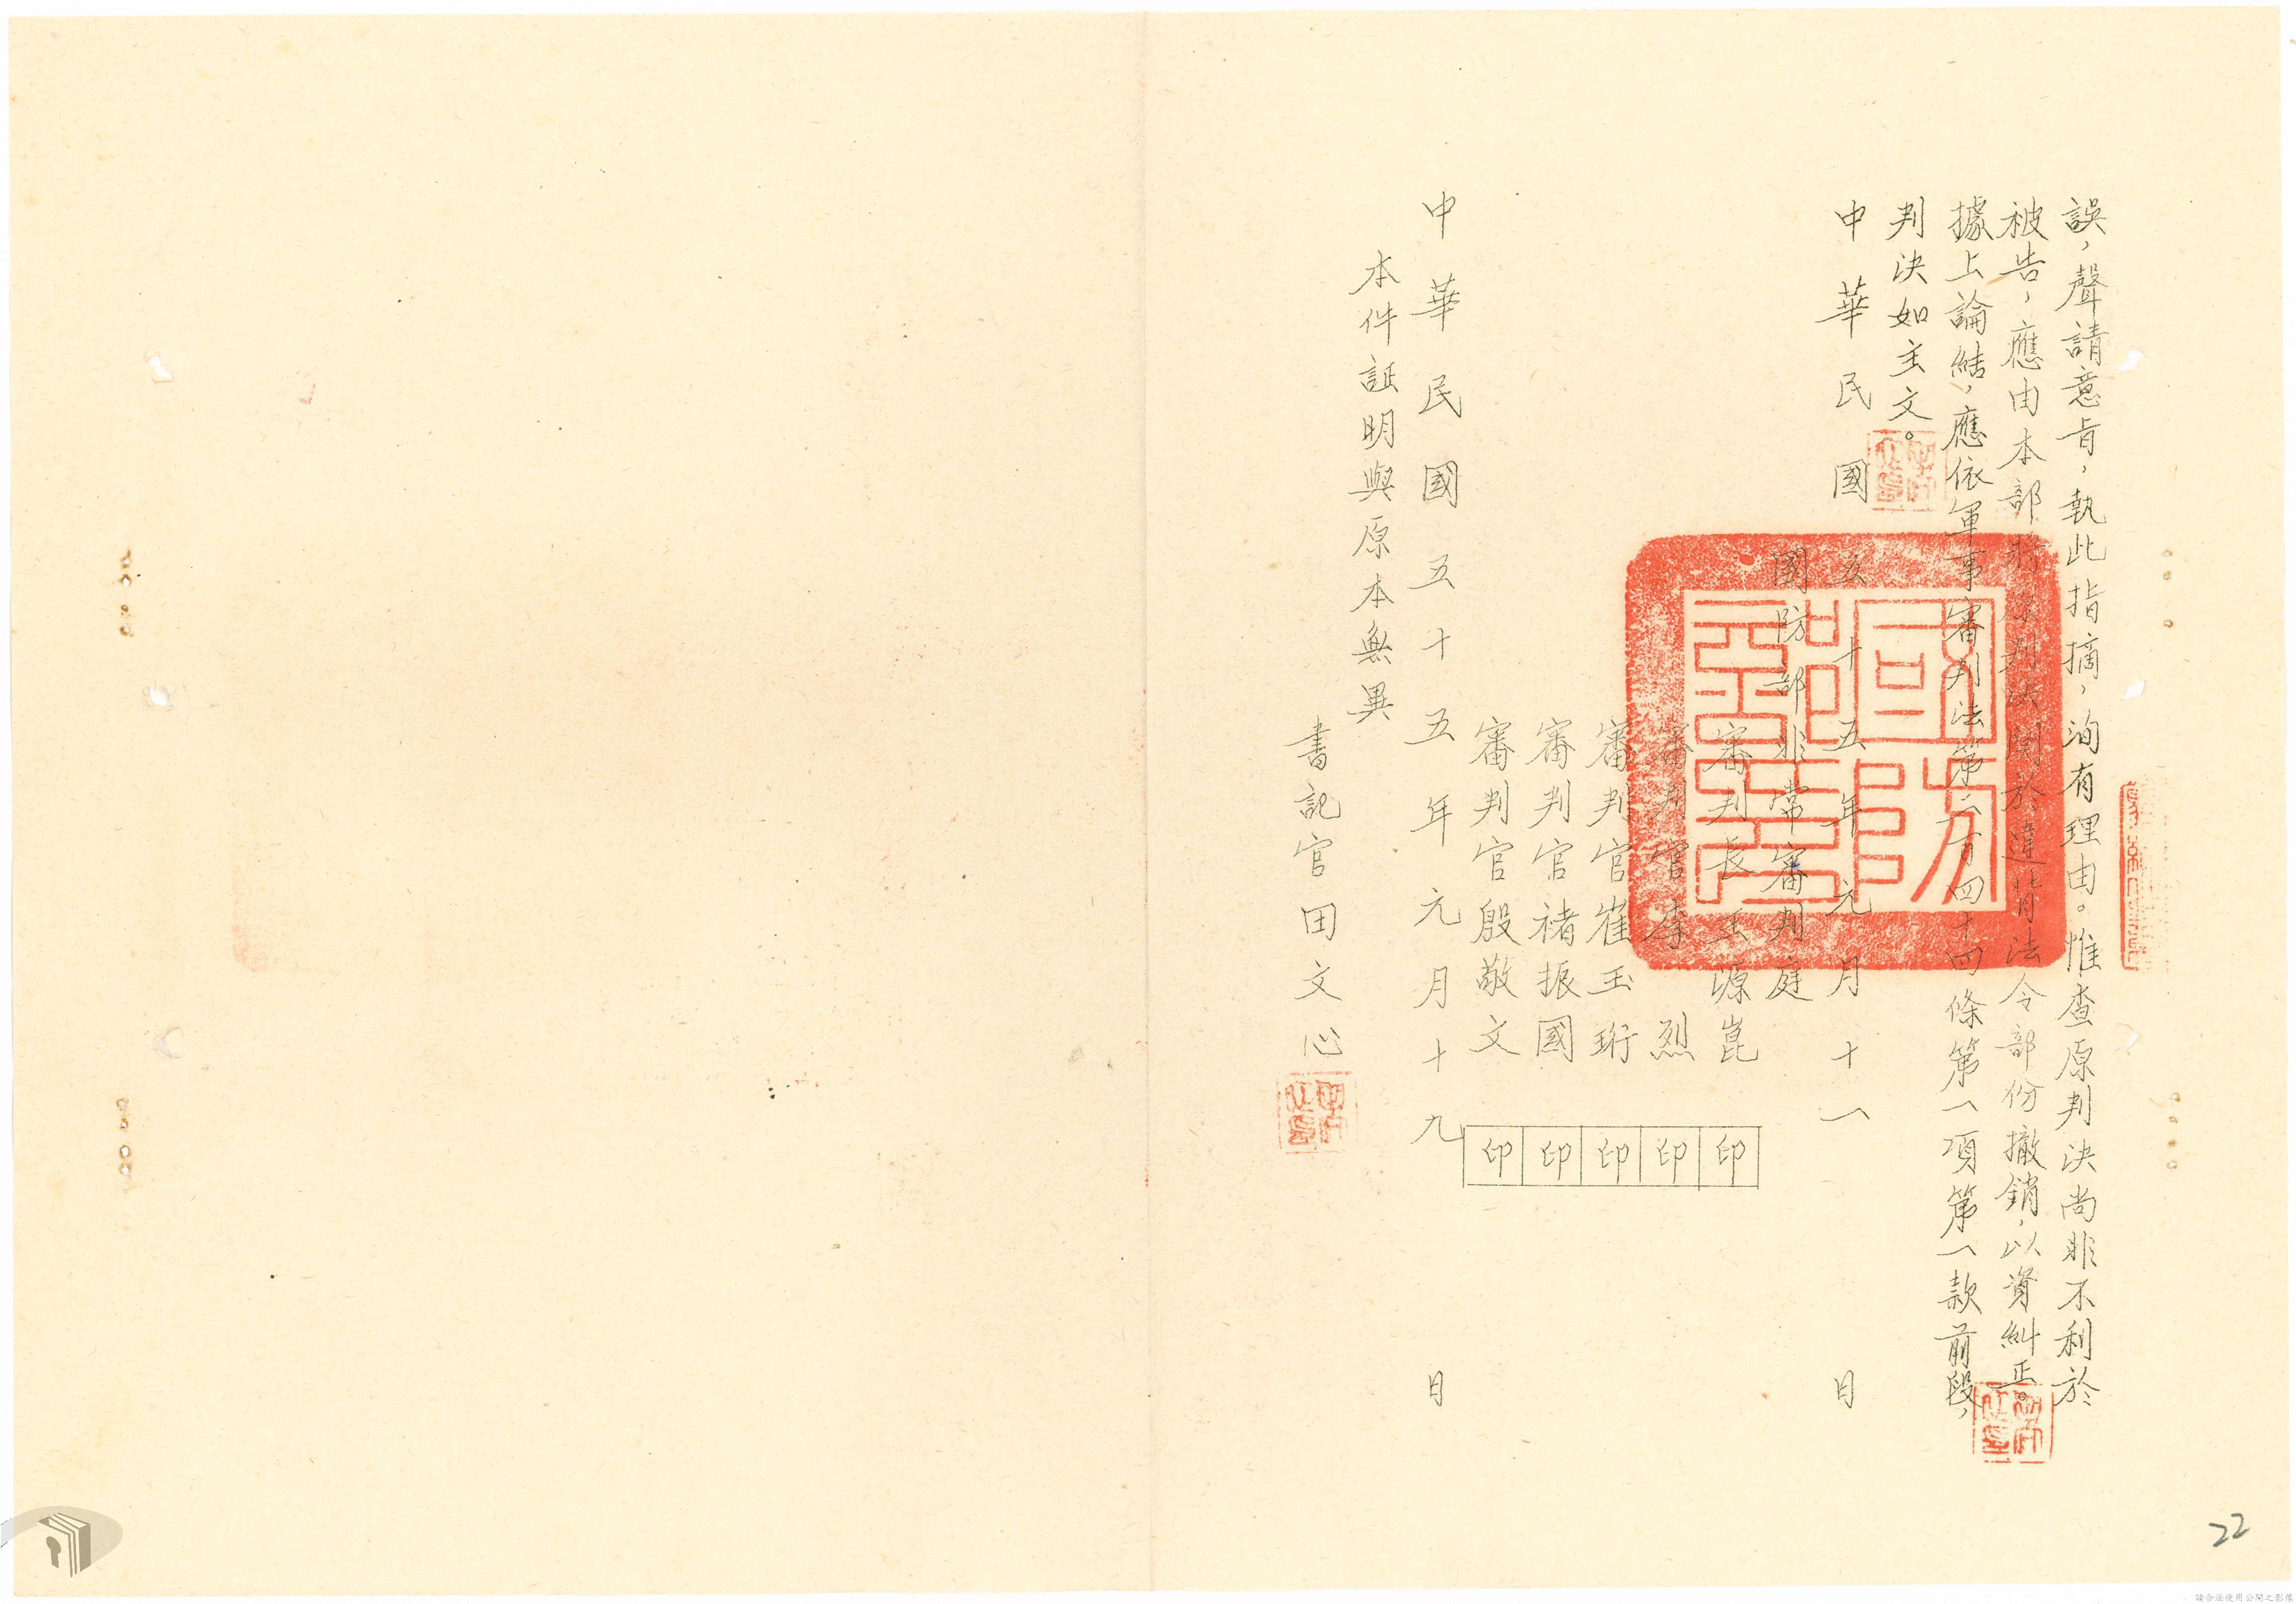 誤，聲請意旨，執此指摘，洵有理由。惟查原判決尚非不利於
被告，應由本部將原判決關於違背法令部份撤銷，以資糾正。
據上論結，應依軍事審判法第二百四十四條第一項第一款前段，
判決如主文。
中華民國五十五年元月十一日
國防部非常審判庭
審判長王源崑 印
審判官李烈 印
審判官崔玉珩 印
審判官褚振國 印
審判官殷敬文 印
中華民國五十五年元月十九日
本件証明與原本無異
書記官田文心
國防部印
22
請合法使用公開之影像